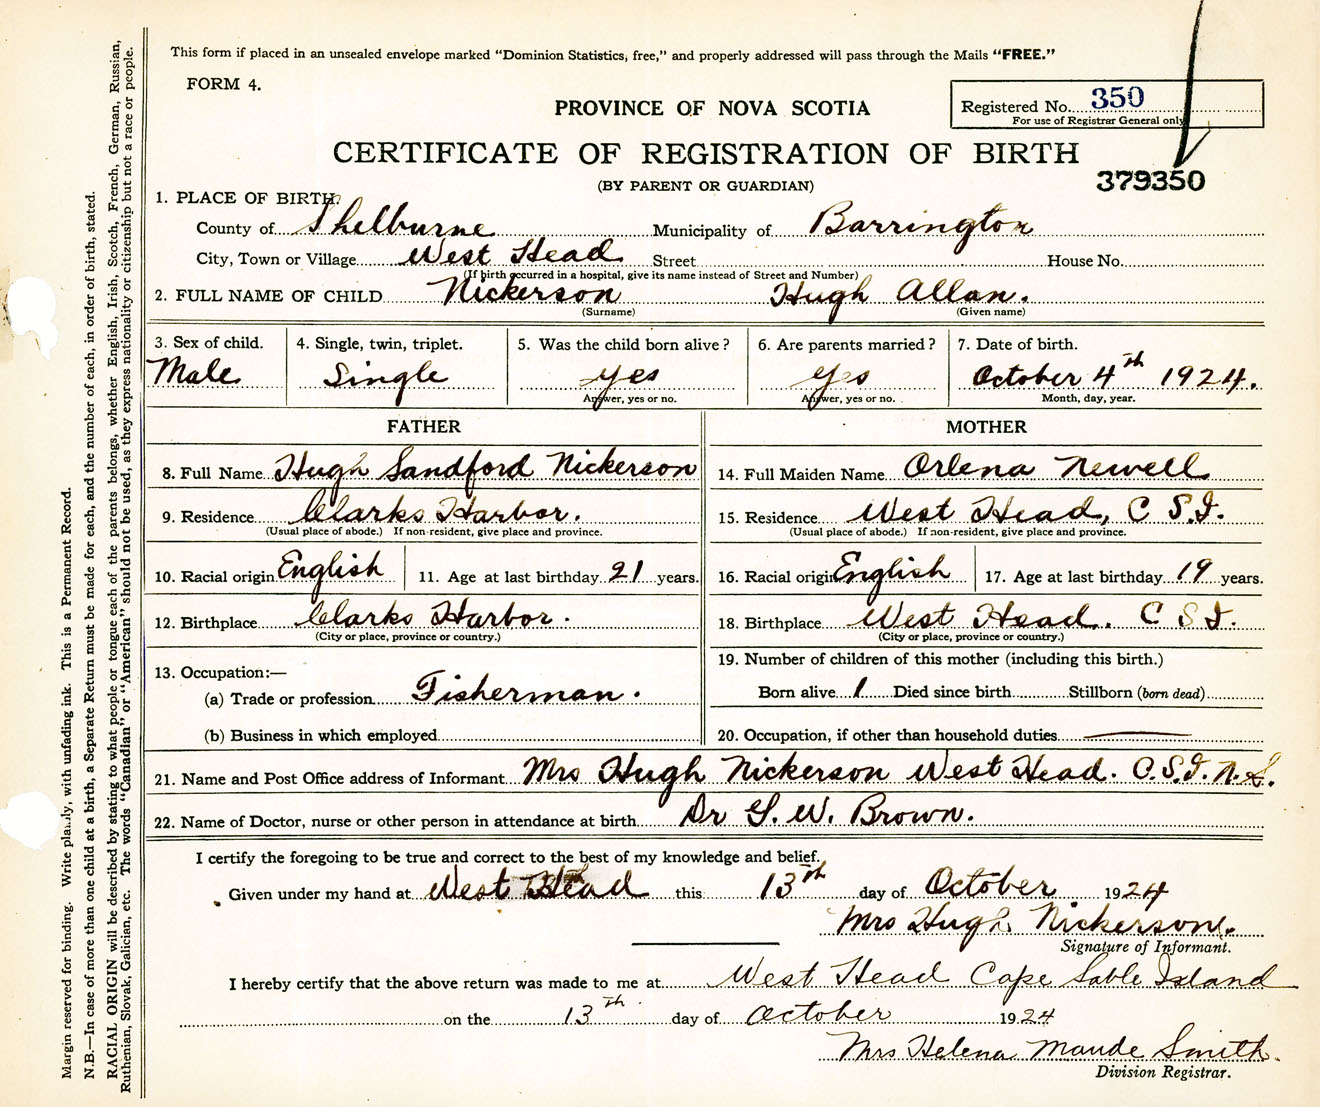 This form if placed in an unsealed envelope marked "Dominion Statistics, free," and properly addressed will pass through the Mails "FREE."
FORM 4.
Registered No. 350
For use of Registrar General only
PROVINCE OF NOVA SCOTIA
CERTIFICATE OF REGISTRATION OF BIRTH
379350
(BY PARENT OR GUARDIAN)
1. PLACE OF BIRTH.
County of Shelburne Municipality of Barrington
City, Town or Village West Head Street House No.
(If birth occurred in a hospital, give its name instead of Street and Number)
2. FULL NAME OF CHILD Nickerson Hugh Allan.
(Surname) (Given name)
3. Sex of child. 4. Single, twin, triplet. 5. Was the child born alive? 6. Are parents married? 7. Date of birth.
Male Single yes yes October 4th 1924.
Answer, yes or no. Answer, yes or no. Month, day, year.
FATHER MOTHER
8. Full Name Hugh Sandford Nickerson 14. Full Maiden Name Orlena Newell
9. Residence Clarks Harbor. 15. Residence West Head, C S.I.
(Usual place of abode.) If non-resident, give place and province. (Usual place of abode.) If non-resident, give place and province.
10. Racial origin English 11. Age at last birthday 21 years. 16. Racial origin English 17. Age at last birthday 19 years.
12. Birthplace Clarks Harbor. 18. Birthplace West Head. C S I.
(City or place, province or country.) (City or place, province or country.)
13. Occupation:— 19. Number of children of this mother (including this birth.)
(a) Trade or profession Fisherman. Born alive 1 Died since birth Stillborn (born dead)
(b) Business in which employed 20. Occupation, if other than household duties
21. Name and Post Office address of Informant Mrs Hugh Nickerson West Head. C.S.I. N.S.
22. Name of Doctor, nurse or other person in attendance at birth Dr G. W. Brown.
I certify the foregoing to be true and correct to the best of my knowledge and belief.
Given under my hand at West Head this 13th day of October 1924
Mrs Hugh Nickerson.
Signature of Informant.
I hereby certify that the above return was made to me at West Head Cape Sable Island
on the 13th day of October 1924
Mrs Helena Maude Smith.
Division Registrar.
Margin reserved for binding. Write plainly, with unfading ink. This is a Permanent Record.
N.B.—In case of more than one child at a birth, a Separate Return must be made for each, and the number of each, in order of birth, stated.
RACIAL ORIGIN will be described by stating to what people or tongue each of the parents belongs, whether English, Irish, Scotch, French, German, Russian,
Ruthenian, Slovak, Galician, etc. The words "Canadian" or "American" should not be used, as they express nationality or citizenship but not a race or people.